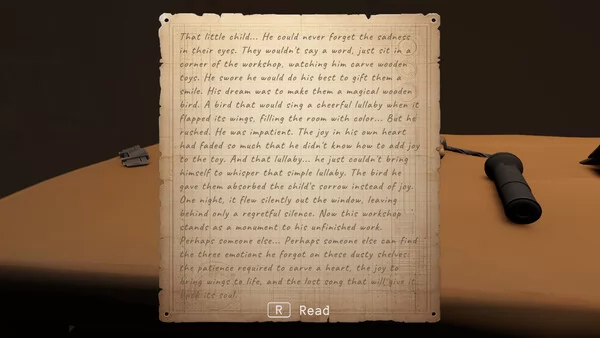 That little child... He could never forget the sadness
in their eyes. They wouldn't say a word, just sit in a
corner of the workshop, watching him carve wooden
toys. He swore he would do his best to gift them a
smile. His dream was to make them a magical wooden
bird. A bird that would sing a cheerful lullaby when it
flapped its wings, filling the room with color... But he
rushed. He was impatient. The joy in his own heart
had faded so much that he didn't know how to add joy
to the toy. And that lullaby... he just couldn't bring
himself to whisper that simple lullaby. The bird he
gave them absorbed the child's sorrow instead of joy.
One night, it flew silently out the window, leaving
behind only a regretful silence. Now this workshop
stands as a monument to his unfinished work.
Perhaps someone else... Perhaps someone else can find
the three emotions he forgot on these dusty shelves:
the patience required to carve a heart, the joy to
bring wings to life, and the lost song that will give it
back its soul.
R Read